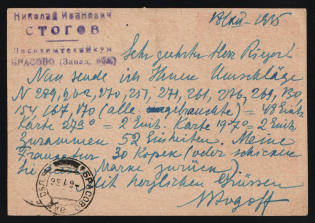 Николай Иванович
СТОГОВ
Лесхимтехникум
БРАСОВО (Запад. обл.)
Sehr geehrter Herr Rieger!
Nun sende ich Ihnen Umschläge
N 229, 602, 170, 251, 271, 261, 276, 269, 130,
154, 167, 170 (alle gebrauchte) = 48 Einh.
Karte 273° = 2 Einh. Karte 197° = 2 Einh.
Zusammen 52 Einheiten. Meine
Frankatur 30 Kopek (oder schicken
Sie Marke zurück).
Mit herzlichen Grüssen
NStogoff
БРАСОВО